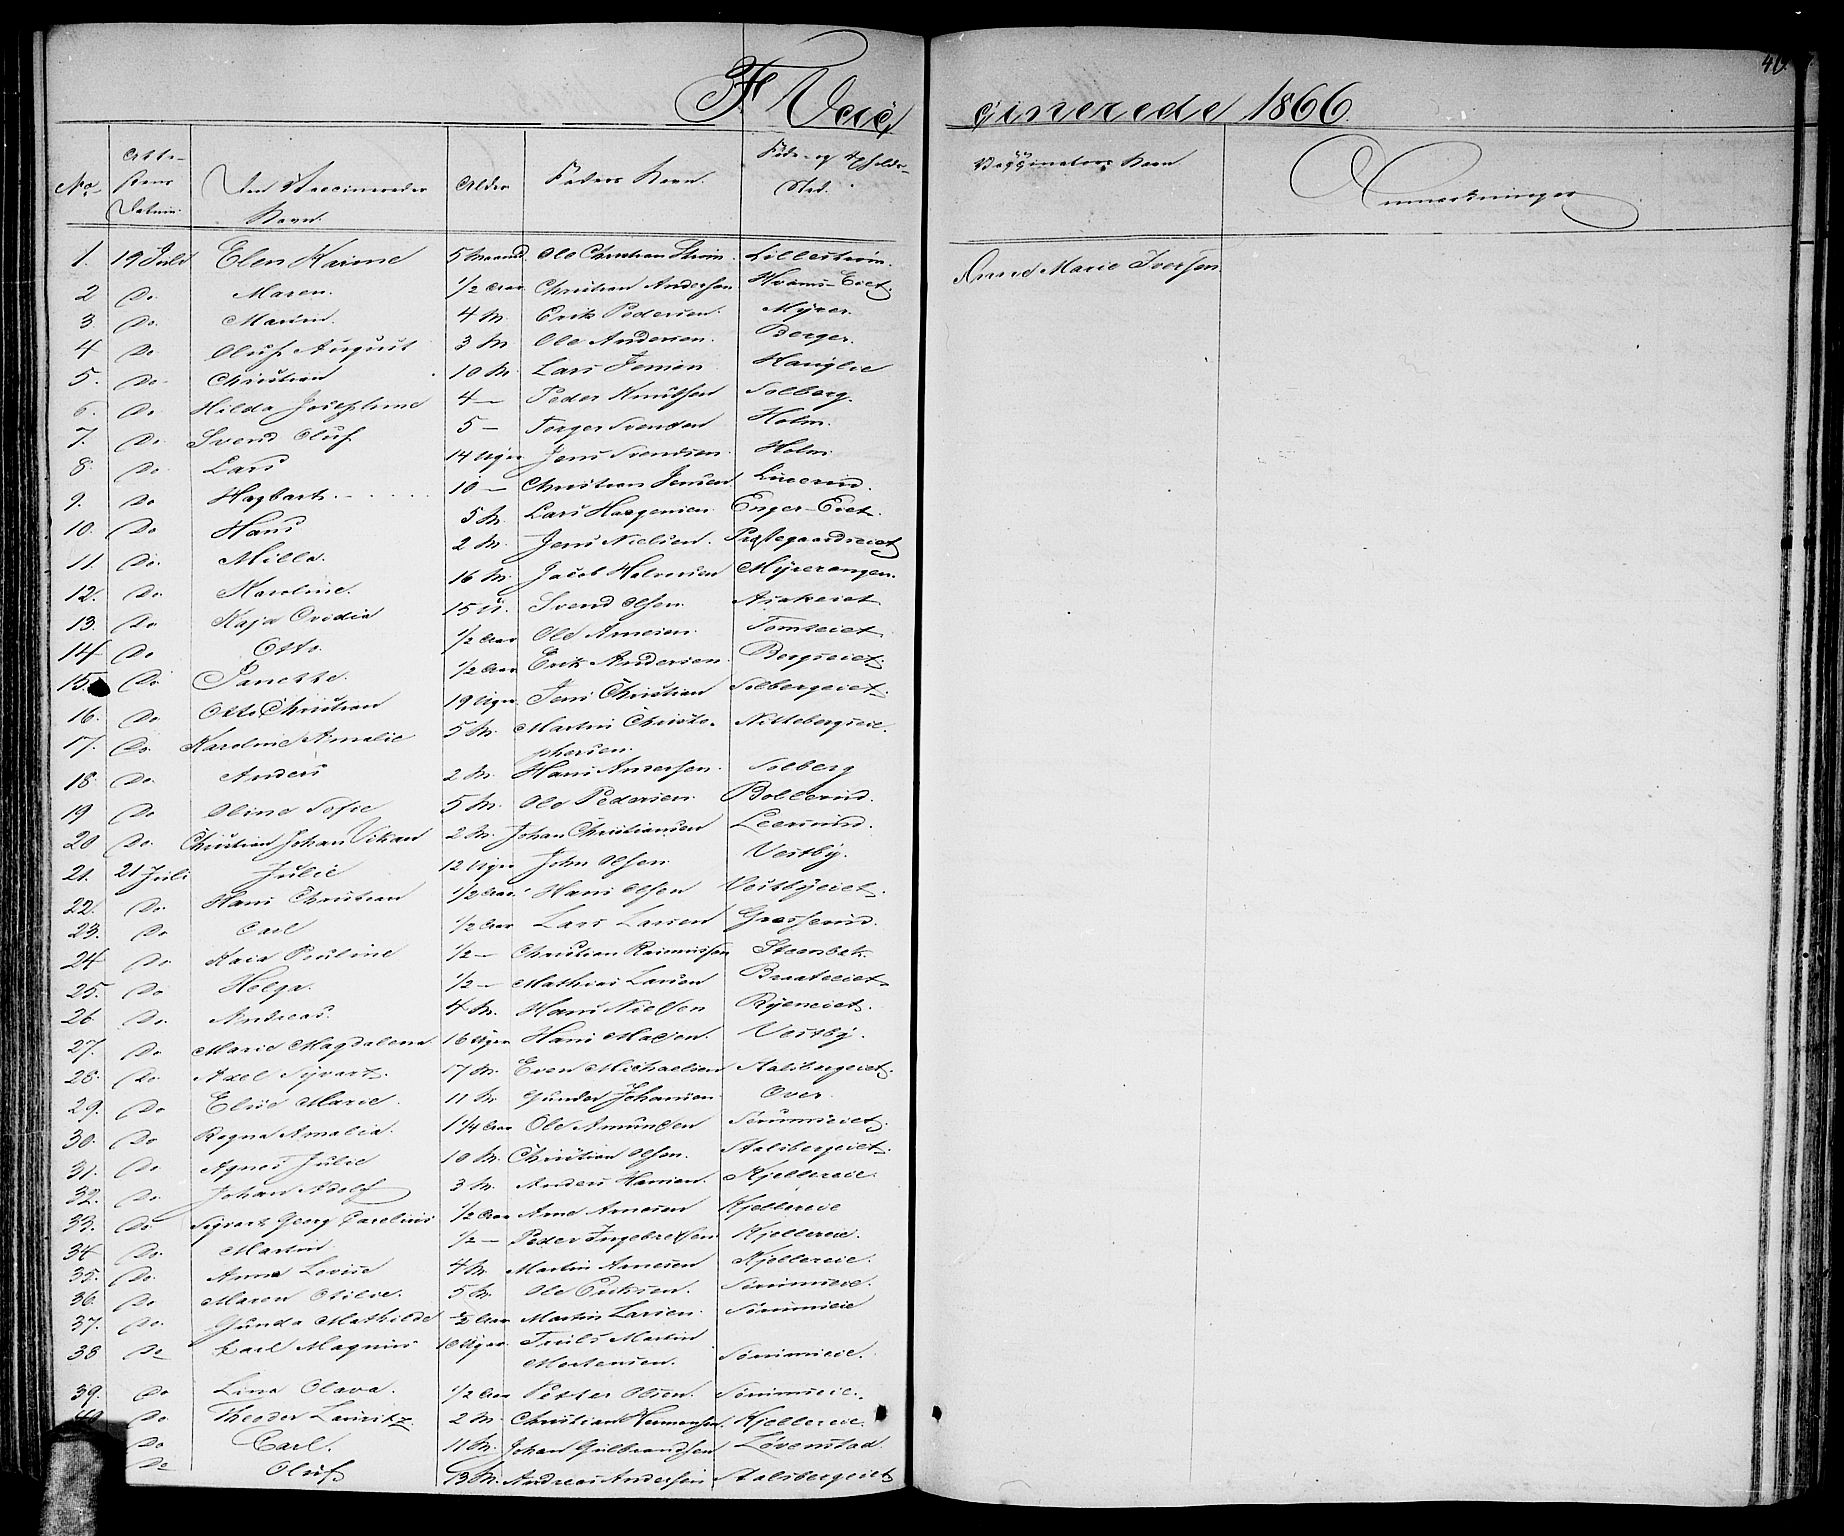 F Vacc cinerede 1866.
No Atte- stens Datum. Den Vaccineredes Navn. Alder Faders Navn. Føde- og Opholds- Sted. Vaccinateurs Navn Anmærkninger
1. 19 Juli Elen Karine 5 Maaned Ole Christian Strøm. Lillestrøm. Anne Marie Iversen
2 Do Maren. 1/2 Aar Christian Andersen Hvams-Eiet.
3. Do. Maren. 4 M. Erik Pedersen. Myrer.
4 Do Oluf August 3 M Ole Andersen. Berger.
5. Do. Christian 10 M. Lars Jensen Hauglie
6. Do Hilda Josephine 4 — Peder Knutsen Solberg.
7. Do. Svend Oluf 5 — Torger Svendsen Holm.
8. Do. Lars 14 Uger Jens Svendsen. Holm
9. Do Hagbart 10 — Christian Jensen
10. Do Hans 5 M. Lars Haagensen Enger-Eiet.
11. Do. Milla. 2 M. Jens Nielsen. Præstegaardseiet
12. Do. Karoline. 16 M. Jacob Halvorsen Myrerangen.
13. Do Kaja Ovidia 15 U. Svend Olsen. Asakeiet
14 Do Otto. 1/2 Aar Ole Arnesen. Tomteiet
15. Do Janette. 1/2 Aar Erik Andersen Bergseiet.
16. Do Otto Christian 19 Uger Jens Christian Solbergeiet.
17. Do. Karoline Amalie 5 M. Martin Christo- Nittebergseie.
phersen.
18. Do Anders 2 M. Hans Andersen. Solberg
19 Do Oline Sofie 5 M. Ole Pedersen. Bollerud.
20 Do. Christian Johan Vikan 2 M. Johan Christiansen Leerund.
21. 21 Juli Julie 12 Uger John Olsen Vestby.
22. Do. Hans Christian 1/2 Aar Hans Olsen Vestbyeiet.
23. Do Carl 1/2 Aar Lars Larsen Grasserud.
24 Do. Kaia Pauline 1/2 — Christian Rasmussen Steenbek.
25. Do Helga. 1/2 — Mathias Larsen Braateeiet
26 Do. Andreas. 4 M. Hans Nielsen Ryeneiet.
27. Do Marie Magdalena 16 Uger Hans Madsen. Vestby.
28. Do Axel Syvart. 17 M. Even Michaelsen Aalsbergeiet.
29. Do Elise Marie. 11 M Gunder Johansen Over.
30. Do Ragna Amalia. 1 1/4 Aar Ole Amundsen Sørumseiet.
31. Do Agnes Julie 10 M. Christian Olsen. Stalsbergeiet.
32. Do. Johan Adolf 3 M. Anders Hansen. Kjellereie.
33. Do. Sigvart Georg Carelius 1/2 Aar Arne Arnesen Kjellereie
34 Do. Martin 1/2 — Peder Ingebretsen Kjellereie.
35. Do. Anna Lovise 4 M. Martin Arnesen Kjellereie.
36. Do Maren Otilie. 5 M. Ole Eriksen. Sørumseie.
37. Do. Gunda Mathilde 1/2 Aar Martin Larsen. Sørumseie
38 Do Karl Magnus 16 Uger Truls Martin
Mortensen. Sørumseie.
39. Do Lina Olava. 1/2 Aar Petter Olsen. Sørumseie.
40 Do Theodor Lauritz. 2 M. Christian Hermansen. Kjellereie.
Do Carl. 11 M. Johan Gulbrandsen Løvenstad.
Do Oluf 13 M. Andreas Andersen Aalsbergeiet